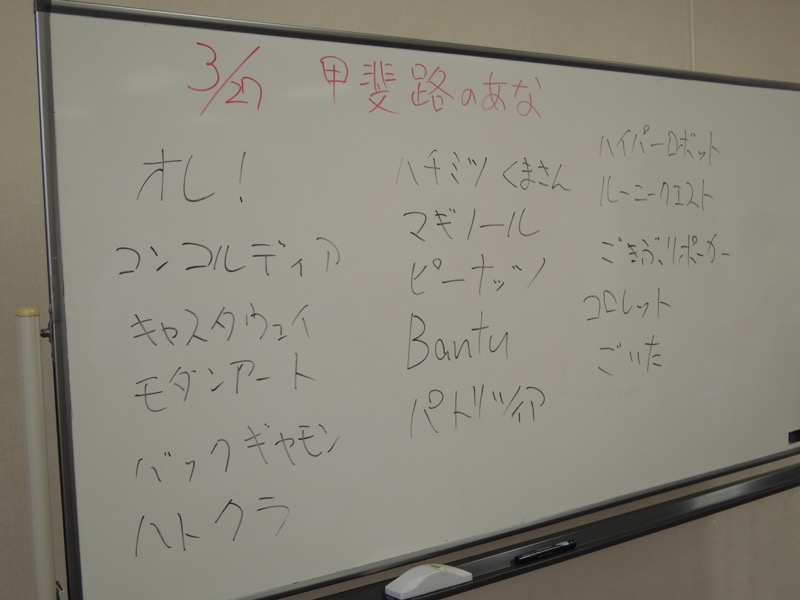 3/27 甲斐路のあな
オレ!
コンコルディア
キャスタウェイ
モダンアート
バックギャモン
ハトクラ
ハチミツくまさん
マギノール
ピーナッツ
Bantu
パトリツィア
ハイパーロボット
ルーニークエスト
ごきぶりポーカー
コロレット
ごいた